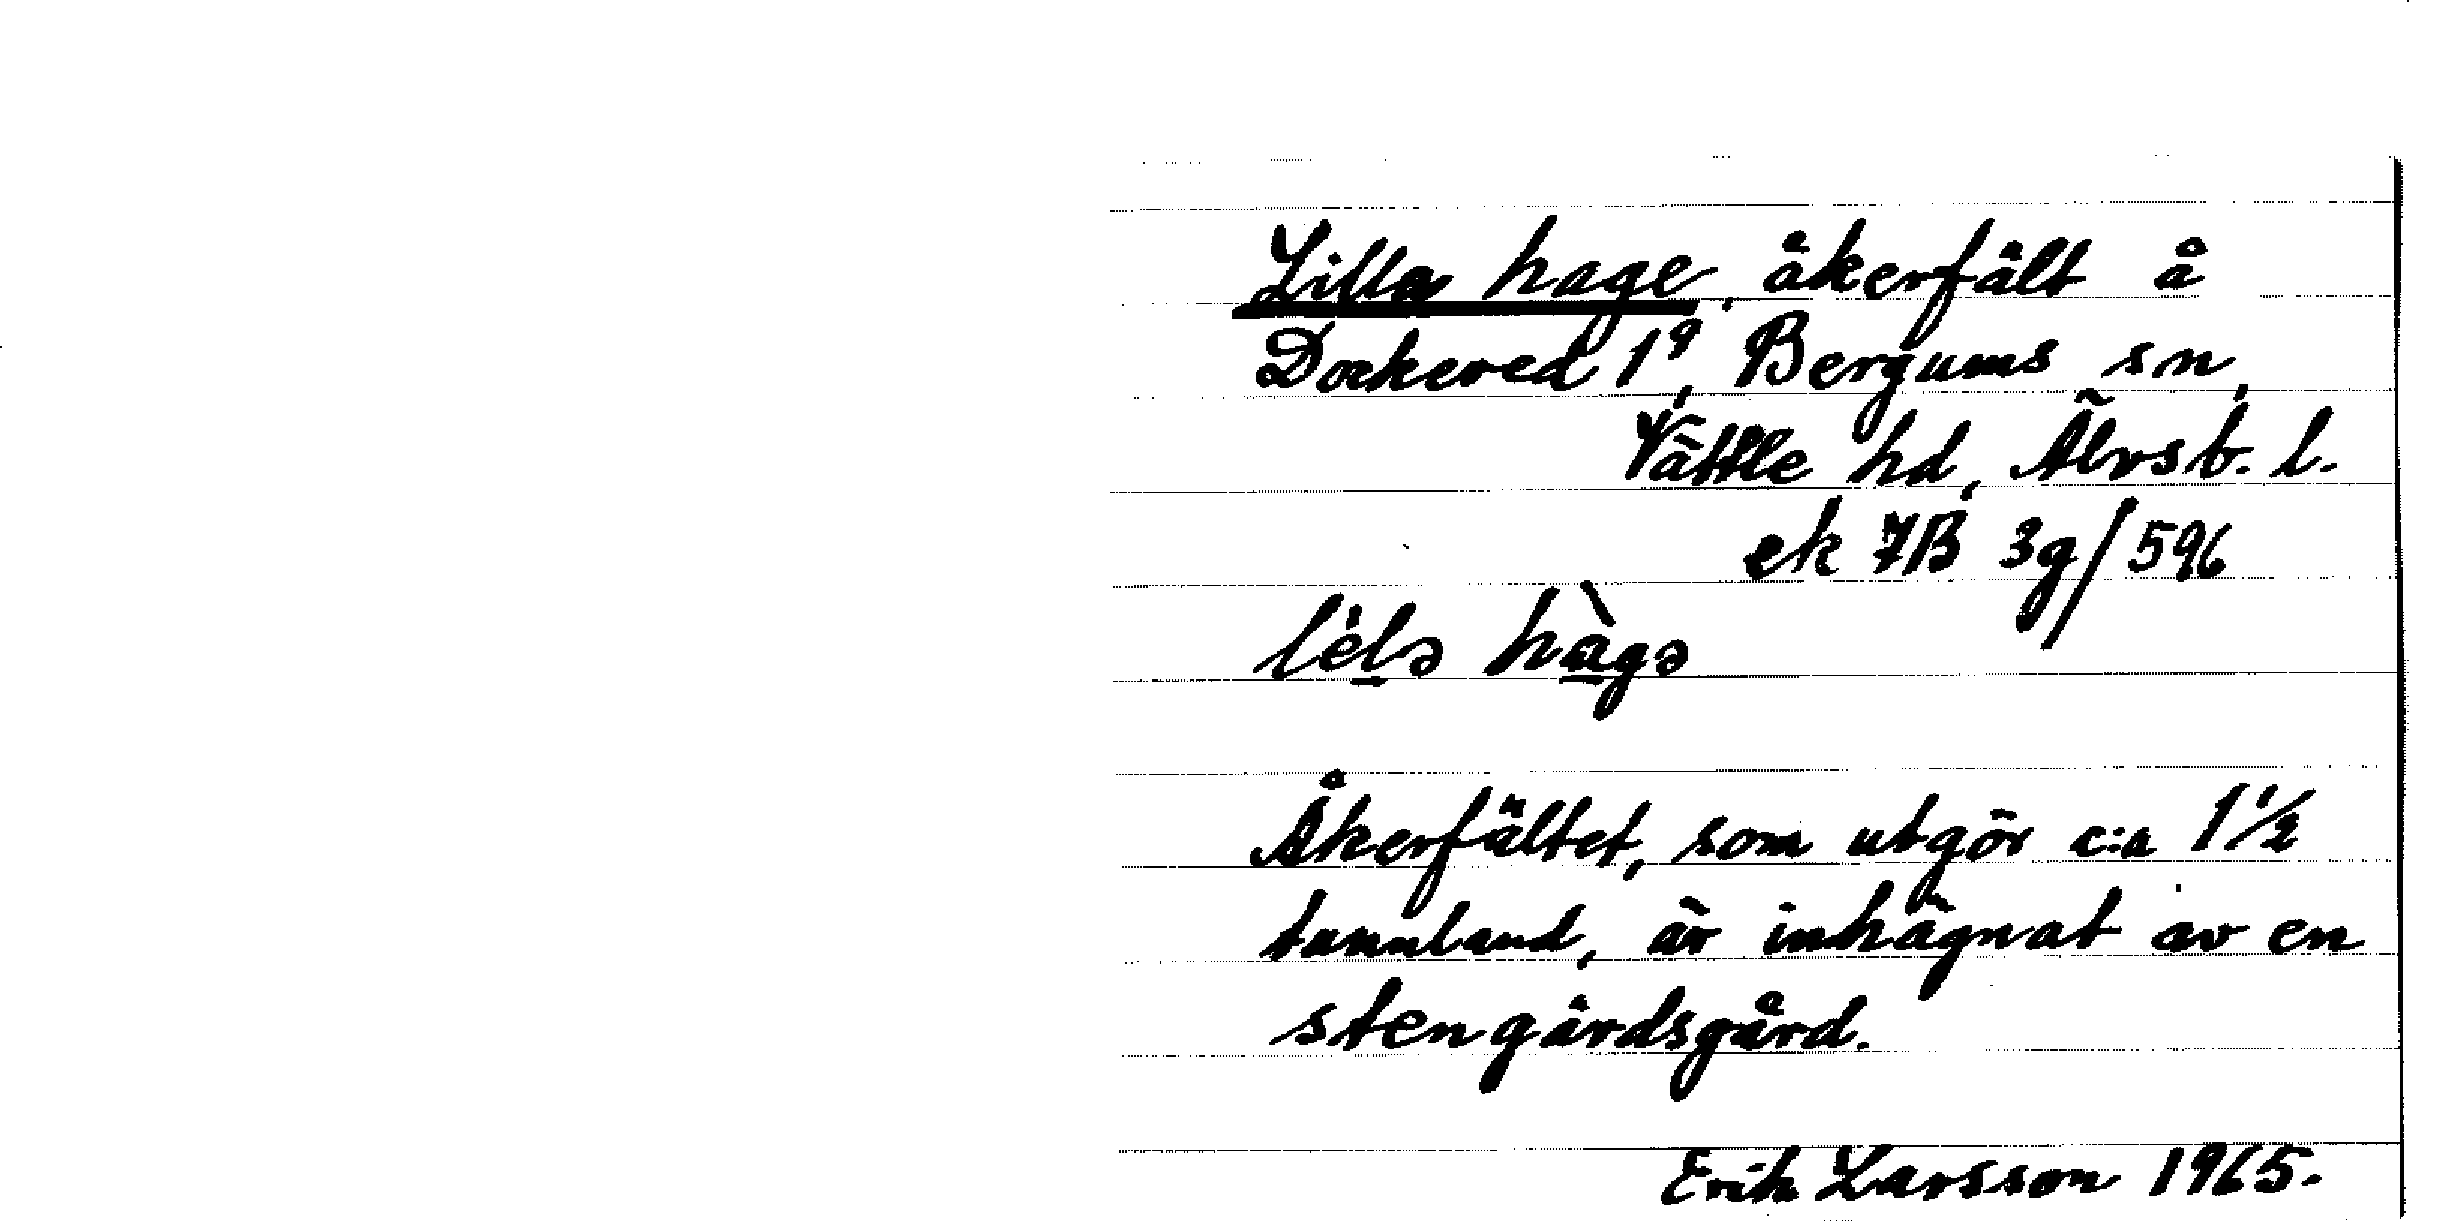 Lilla hage, åkerfält å
Dockered 1⁹, Bergums sn,
Vättle hd, Älvsb. l.
ek 7B 3g/596
lèlə hàgə
Åkerfältet, som utgör c:a 1 1/2
tunnland, är inhägnat av en
stengärdsgård.
Erik Larsson 1965.